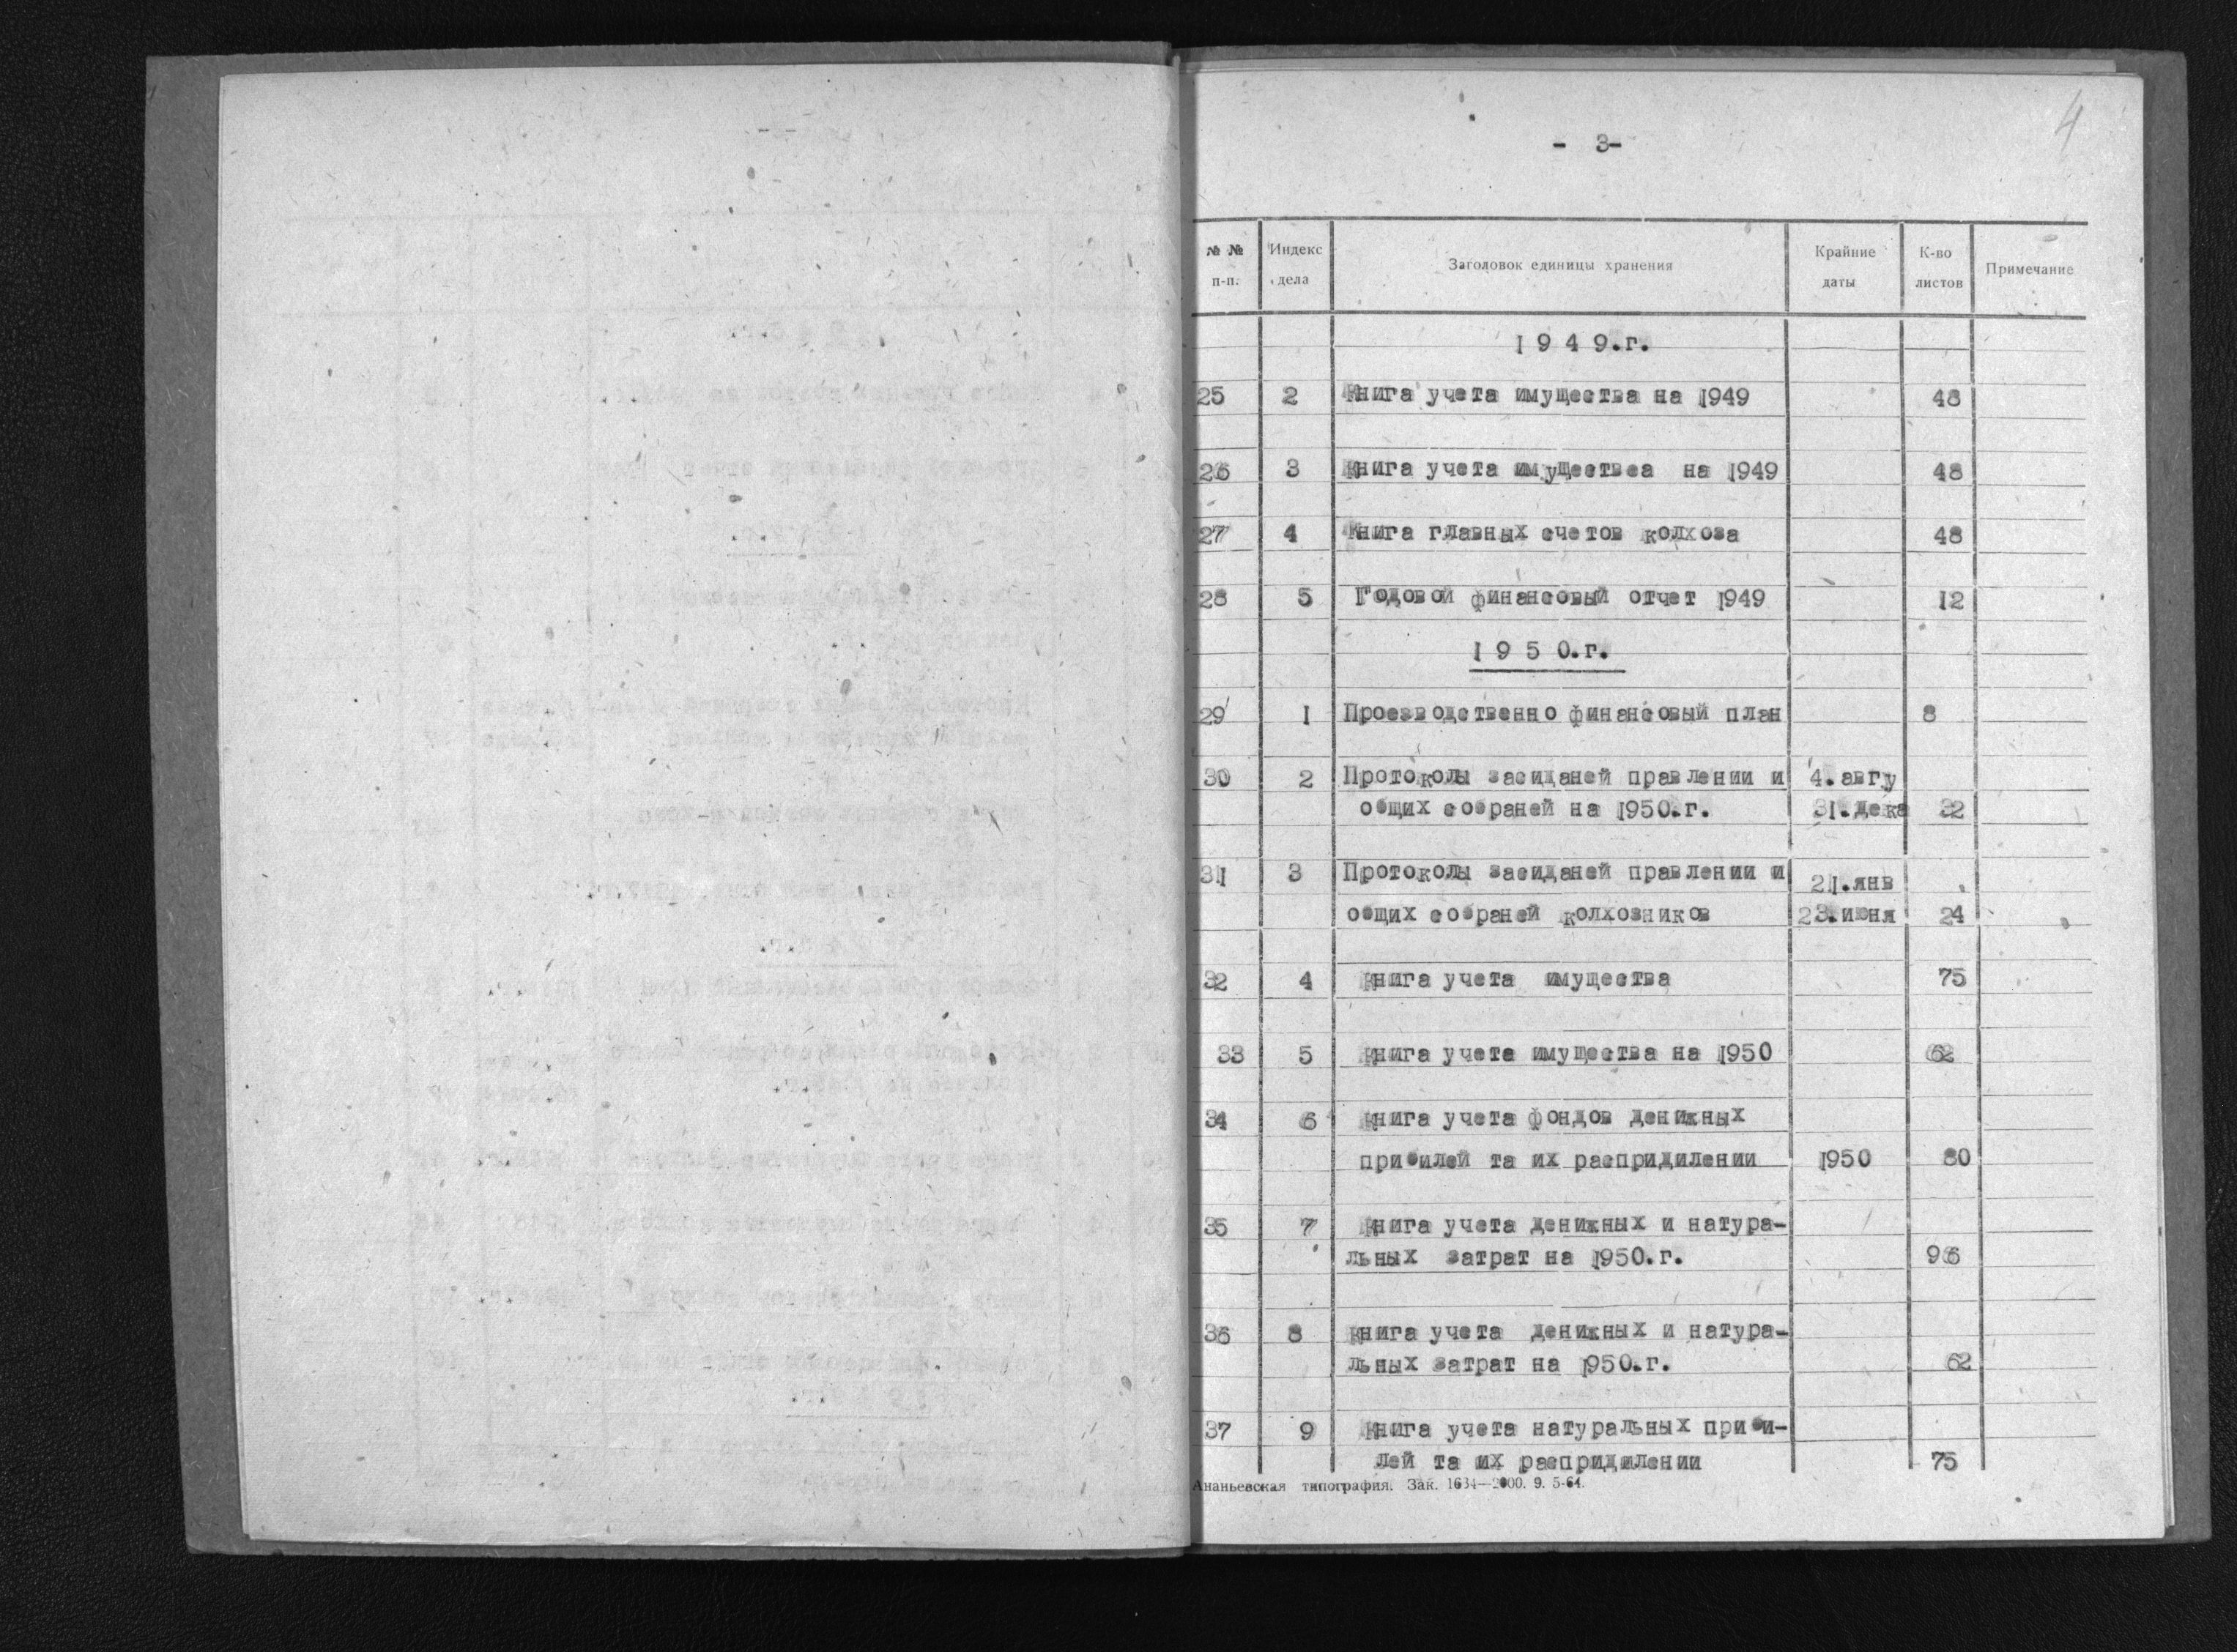 4
- 3-
№ № п-п. Индекс дела Заголовок единицы хранения Крайние даты К-во листов Примечание
1 9 4 9.г.
25 2 Книга учета имущества на 1949 48
26 3 Книга учета имуществеа на 1949 48
27 4 Книга главных счетов колхоза 48
28 5 Годовой финансовый отчет 1949 12
1 9 5 0.г.
29 1 Проезводственно финансовый план 8
30 2 Протоколы засиданей правлении и 4.авгу
общих собраней на 1950.г. 31.дека 32
31 3 Протоколы засиданей правлении и 21.янв
общих собраней колхозников 23.июня 24
32 4 Книга учета имущества 75
33 5 Книга учета имущества на 1950 62
34 6 Книга учета фондов денижных
прибилей та их распридилении 1950 80
35 7 Книга учета денижных и натура-
льных затрат на 1950.г. 96
36 8 Книга учета денижных и натура-
льных затрат на 1950.г. 62
37 9 Книга учета натуральных приби-
лей та их распридилении 75
Ананьевская типография. Зак. 1634—2000. 9. 5-64.